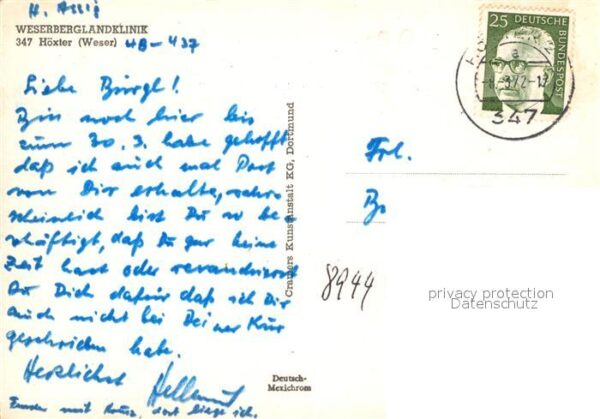 WESERBERGLANDKLINIK
347 Höxter (Weser) 4B-437
Liebe Burgl!
Bin noch hier bis
zum 30. 3. habe gehofft
daß ich auch mal Post
von Dir erhalte, wahr-
scheinlich bist Du so be-
schäftigt, daß Du gar keine
Zeit hast oder revanchierst
Du Dich dafür daß ich Dir
auch nicht bei Deiner Kur
geschrieben habe.
Herzlichst Hellmut
mit Kreuz, dort liege ich.
Cramers Kunstanstalt KG, Dortmund
Deutsch-
Mexichrom
25 DEUTSCHE
BUNDESPOST
347
Frl.
8944
privacy protection
Datenschutz